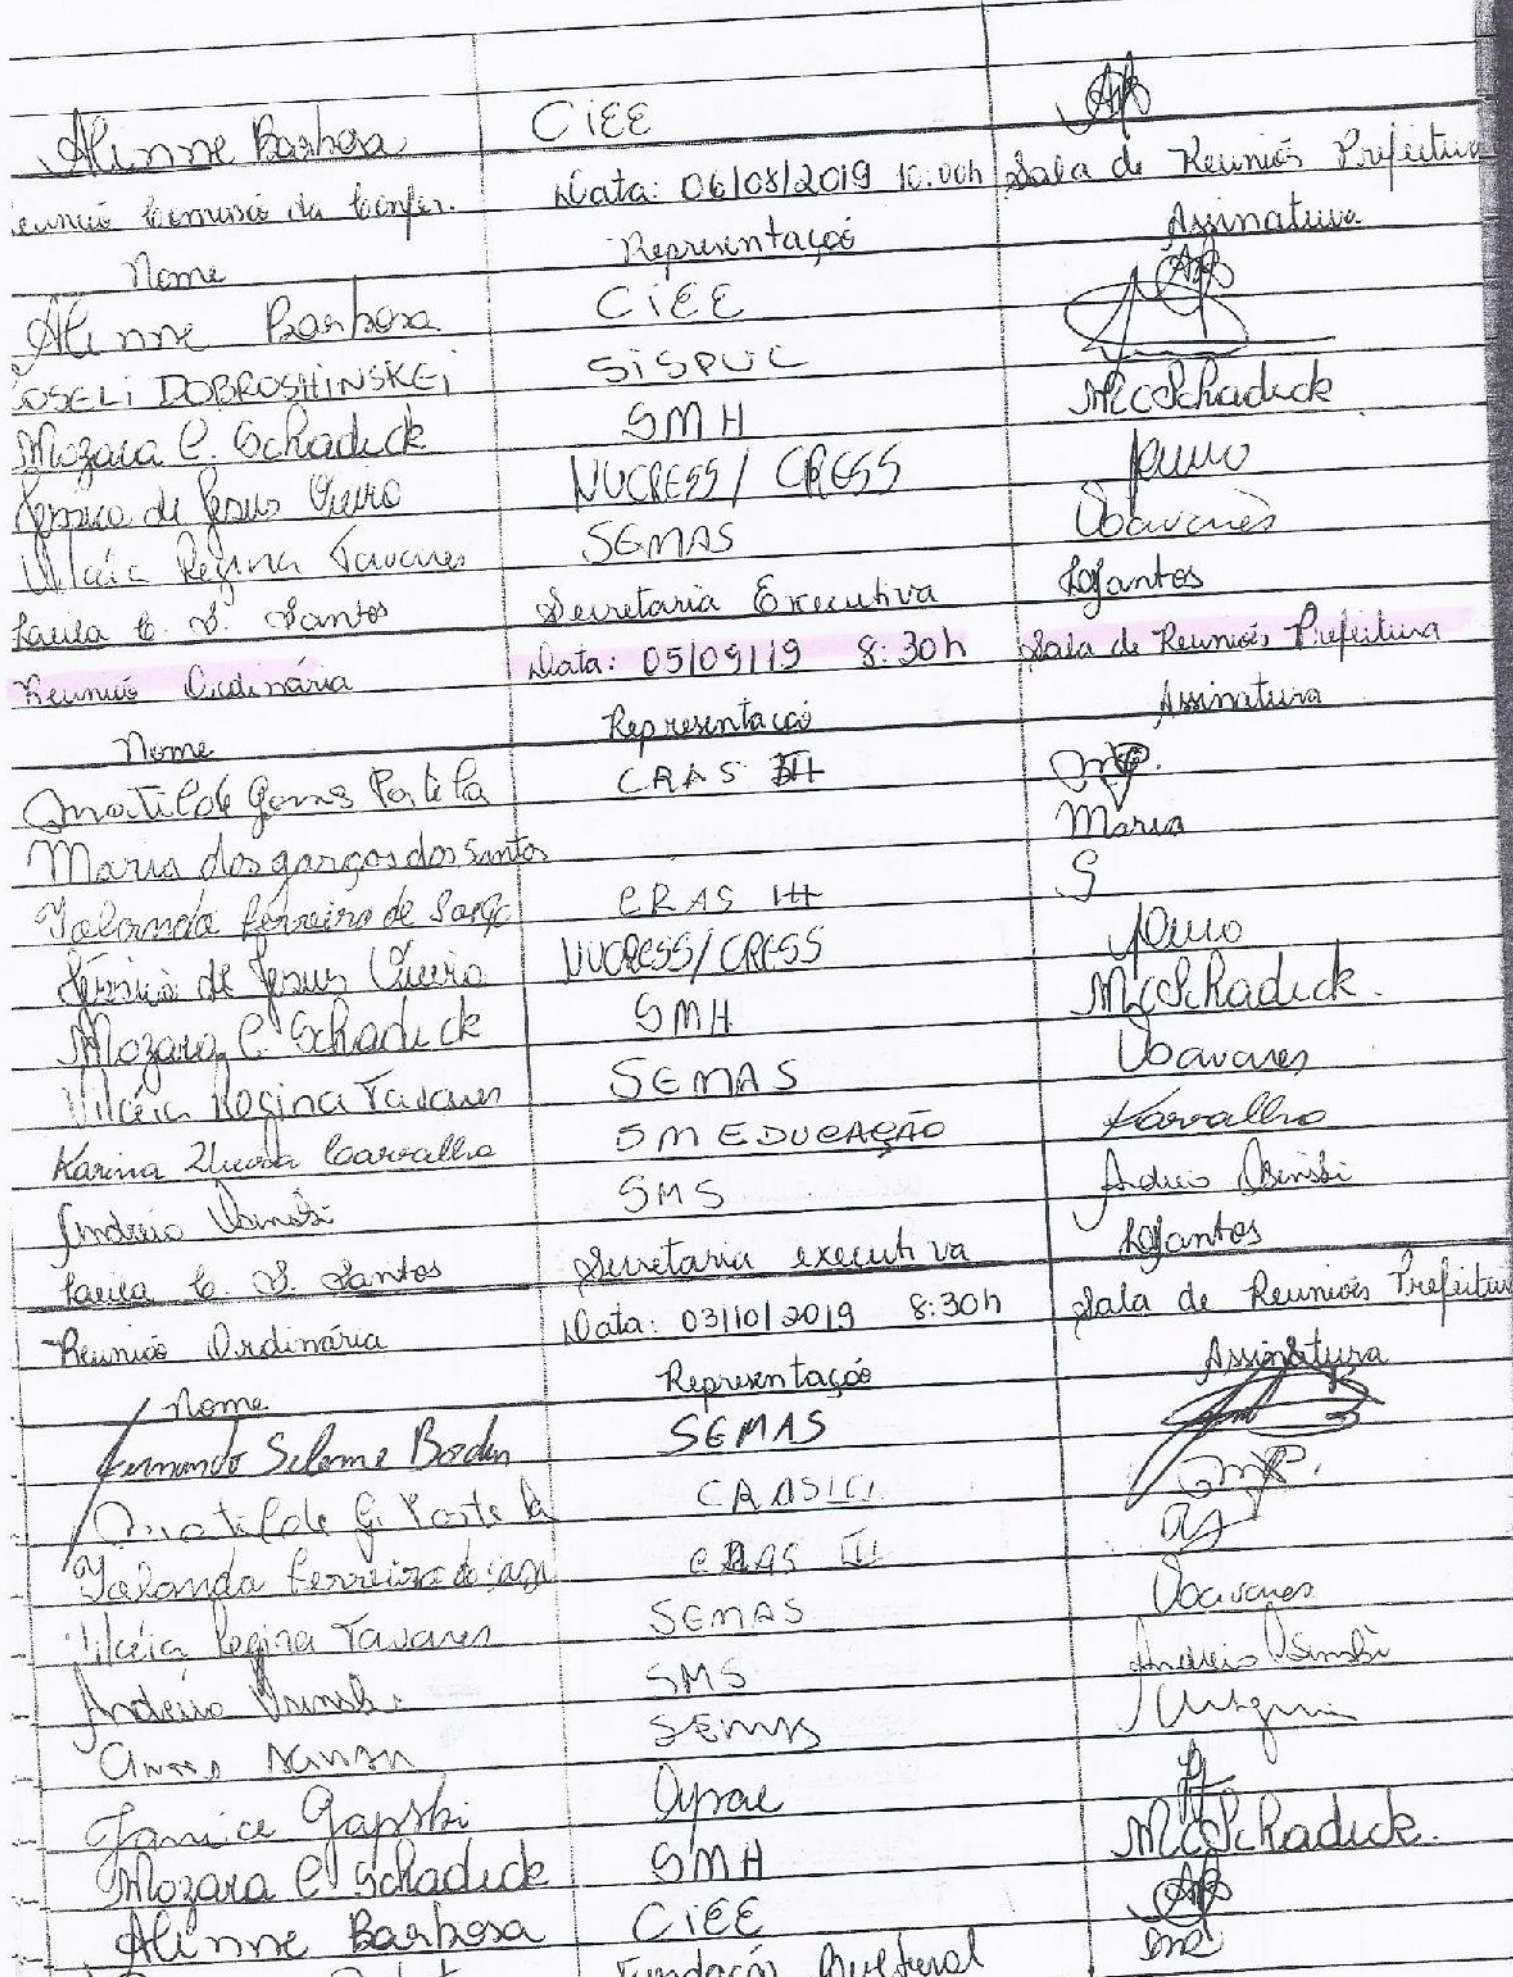 Alinne Barbosa CIEE AB
Reunião Comissão da Confer. Data: 06/08/2019 10:00h Sala de Reuniões Prefeitura
Nome Representação Assinatura
Alinne Barbosa CIEE AB
OSELI DOBROSHINSKEI SISPUC
Mozara C. Schadeck SMH McSchadeck
Jéssica de Jesus Vieira NUCRESS / CRESS
Vilcéia Regina Tavares SEMAS Tavares
Laura C. S. Santos Secretaria Executiva Santos
Reunião Ordinária Data: 05/09/19 8:30h Sala de Reuniões Prefeitura
Nome Representação Assinatura
Matilde Gomes Portela CRAS III
Maria das garças dos Santos Maria
Yolanda Ferreira de CRAS III
Jéssica de Jesus Vieira NUCRESS/CRESS
Mozara C. Schadeck SMH McSchadeck.
Vilcéia Regina Tavares SEMAS Tavares
Karina Carvalho SM EDUCAÇÃO Karvalho
Andréia Osinski SMS Andréia Osinski
Laura C. S. Santos Secretaria executiva Santos
Reunião Ordinária Data: 03/10/2019 8:30h Sala de Reuniões Prefeitura
Nome Representação Assinatura
Fernando Bordin SEMAS
Matilde G. Portela CRAS III
Yolanda Ferreira de CRAS III
Vilcéia Regina Tavares SEMAS Tavares
Andréia Osinski SMS Andréia Osinski
SEMAS
Janice Gapski Apae
Mozara C. Schadeck SMH McSchadeck.
Alinne Barbosa CIEE AB
Fundação Cultural